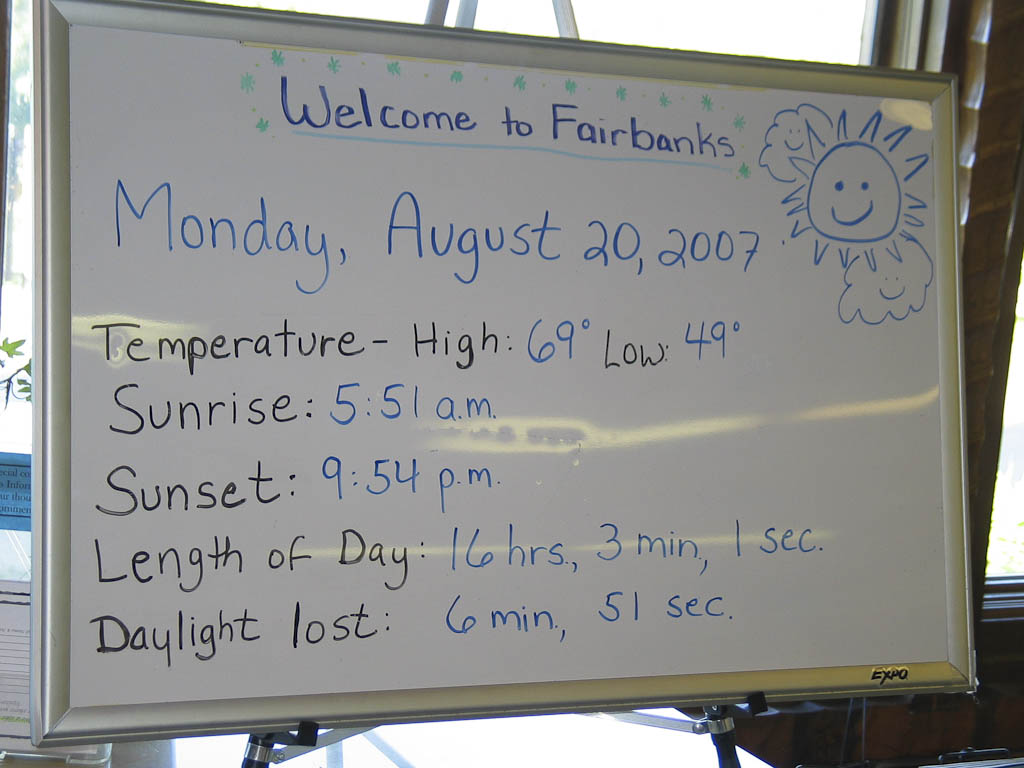 Welcome to Fairbanks
Monday, August 20, 2007
Temperature - High: 69° Low: 49°
Sunrise: 5:51 a.m.
Sunset: 9:54 p.m.
Length of Day: 16 hrs., 3 min, 1 sec.
Daylight lost: 6 min., 51 sec.
EXPO